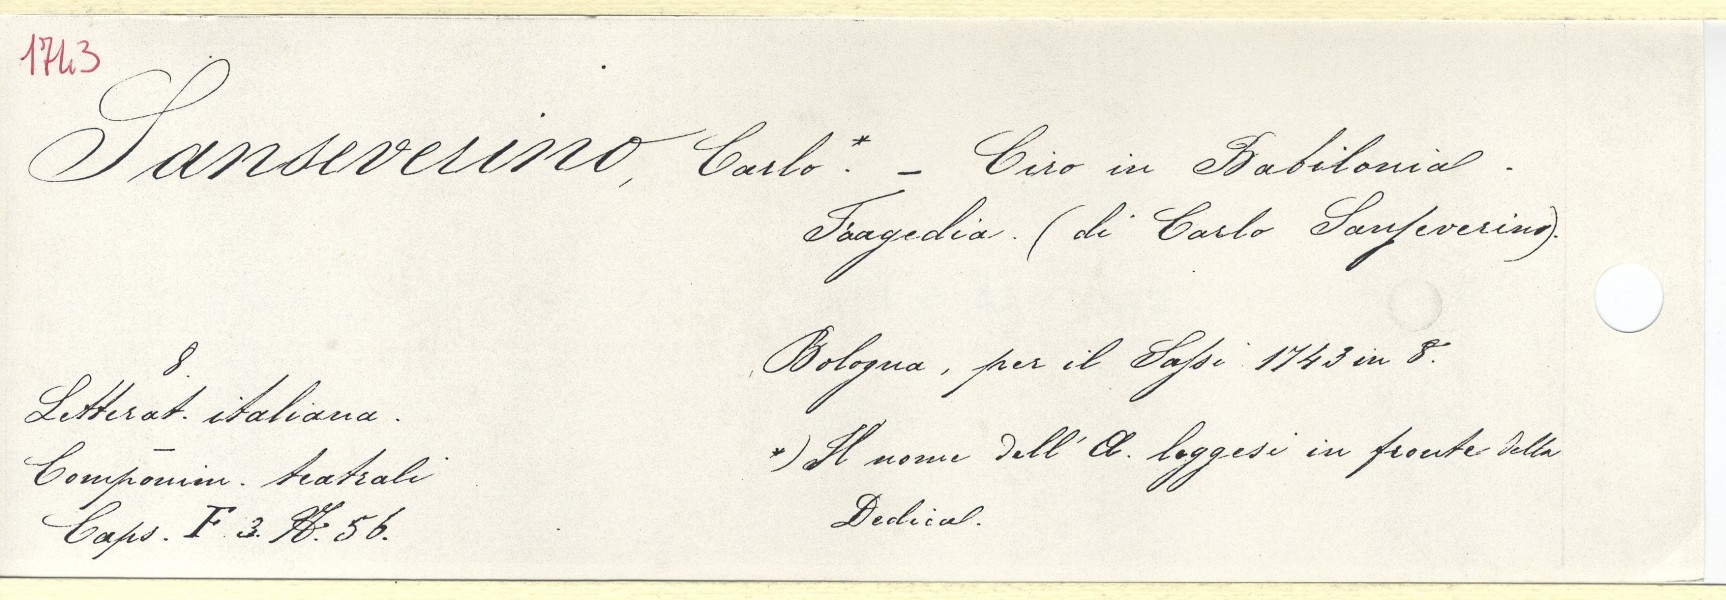 1743
Sanseverino, Carlo*. - Ciro in Babilonia.
Tragedia. (di Carlo Sanseverino).
Bologna, per il Sassi 1743 in 8.
8
Letterat. italiana.
Compōnim. teatrali
Caps. F 3. N. 56.
*) Il nome dell' A. leggesi in fronte della
Dedical.